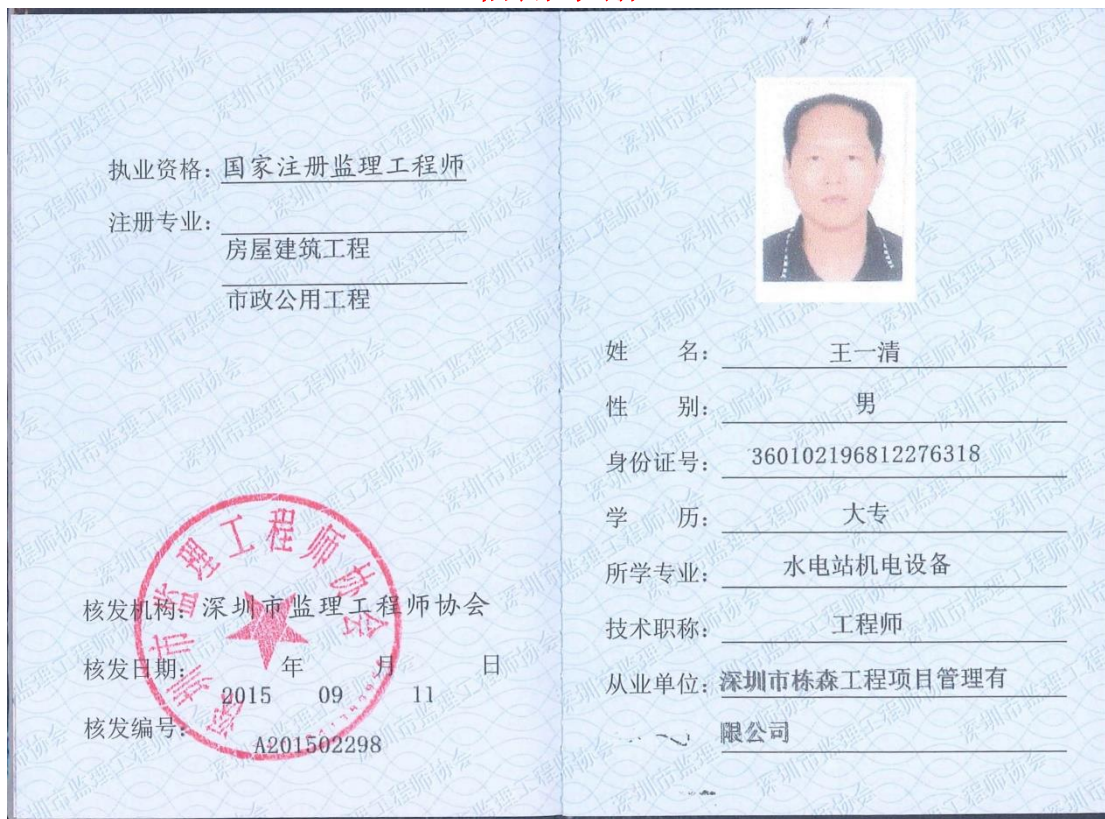 执业资格：国家注册监理工程师
注册专业：
房屋建筑工程
市政公用工程
核发机构：深圳市监理工程师协会
核发日期： 年 月 日
2015 09 11
核发编号：
A201502298
深圳市监理工程师协会
姓 名： 王一清
性 别： 男
身份证号： 360102196812276318
学 历： 大专
所学专业： 水电站机电设备
技术职称： 工程师
从业单位：深圳市栋森工程项目管理有
限公司
深圳市监理工程师协会